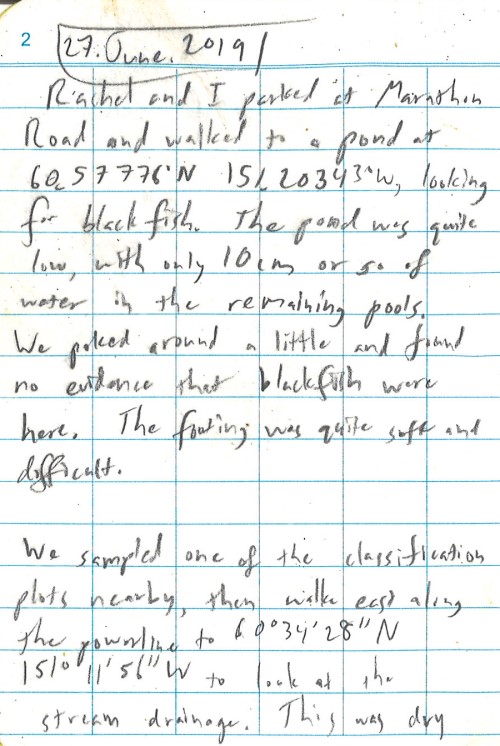 2
27. June. 2019
Rachel and I parked at Marathon
Road and walked to a pond at
60.57776°N 151.20343°W, looking
for blackfish. The pond was quite
low, with only 10cm or so of
water in the remaining pools.
We poked around a little and found
no evidence that blackfish were
here. The footing was quite soft and
difficult.
We sampled one of the classification
plots nearby, then walke east along
the powerline to 60°34'28"N
151°11'56"W to look at the
stream drainage. This was dry